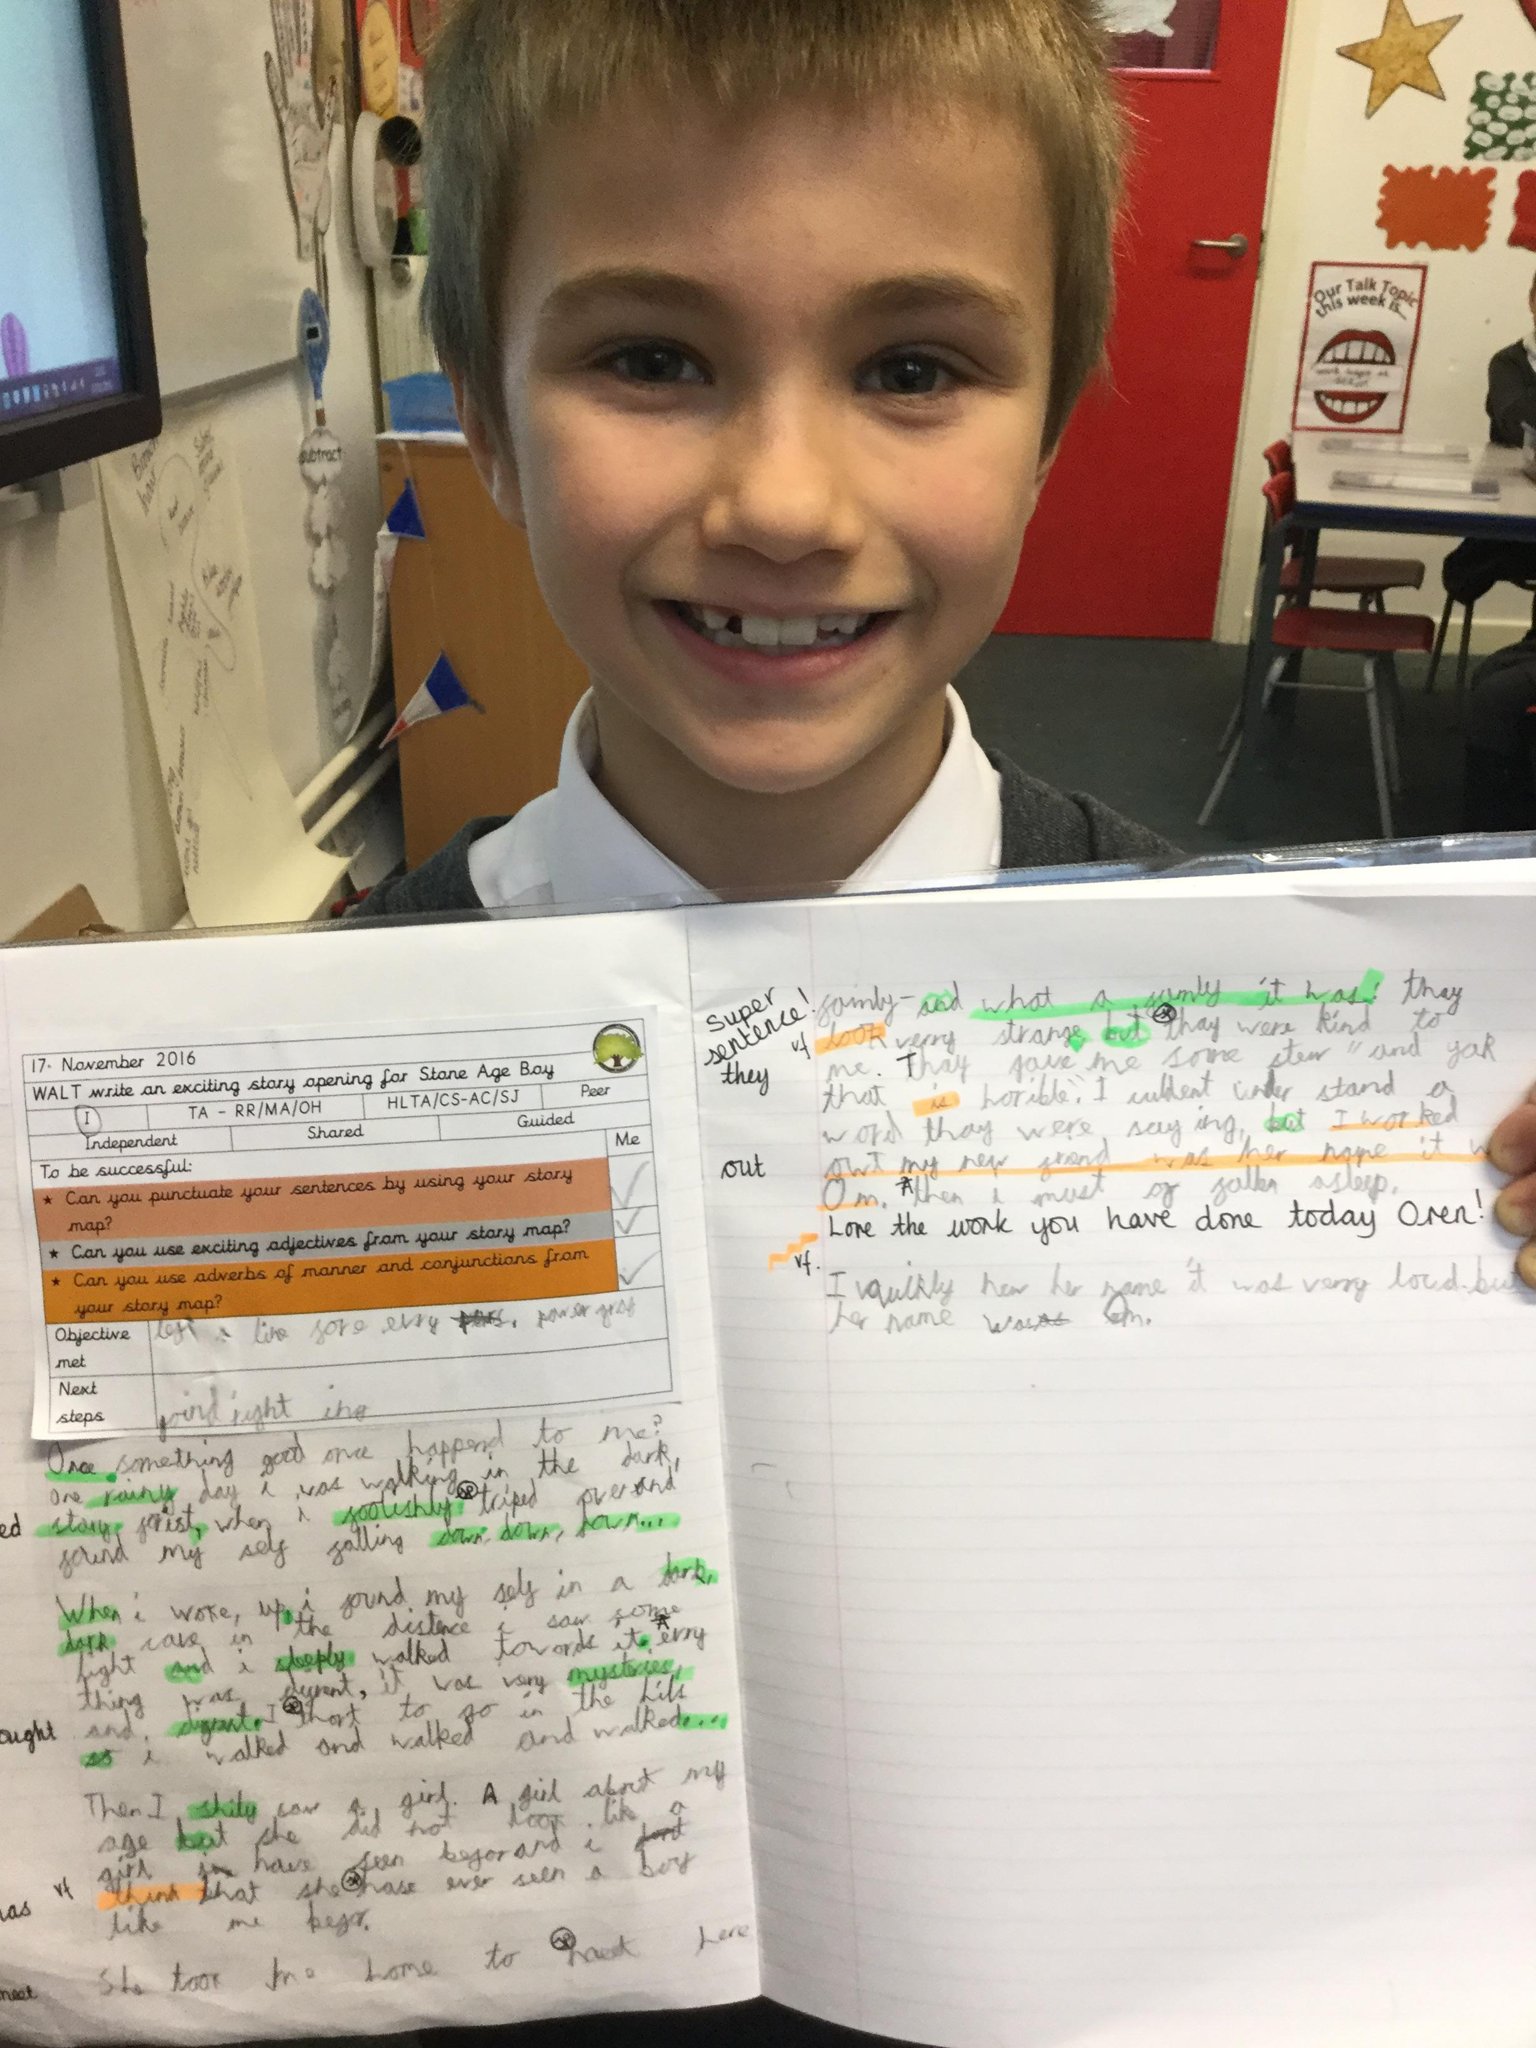 Our Talk Topic
this week is...
subtract
17. November 2016
WALT write an exciting story opening for Stone Age Boy
I TA - RR/MA/OH HLTA/CS-AC/SJ Peer
Independent Shared Guided
Me
To be successful:
★ Can you punctuate your sentences by using your story
map?
★ Can you use exciting adjectives from your story map?
★ Can you use adverbs of manner and conjunctions from
your story map?
Objective
met
Next
steps
joind right ing
Once something good once happend to me?
one rainy day i was walking in the dark,
ed
story forist, when i foolishly triped over and
found my self falling down, down, down...
When i woke, up, i found my self in a dark,
dark cave in the distence i saw some
light and i steeply walked towords it. A erry
thing was diyrent, it was very mysteries,
and, digrent. I thort to go in the hils
ought
so i walked and walked and walked...
Then I shily saw a girl. A girl about my
age but she did not look like a
girl have seen befor and i
vf think that she hase ever seen a boy
has
like me befor.
She took me home to heet here
meet
Super
sentence!
gamly- and what a gamly it was! thay
vf look verry strange, but thay were kind to
they
me. Thay gave me some stew "and yak
that is horible". I culdent under stand a
word thay were saying, but I worked
out
owt my new frend was her name it w
Om. A then i must of fallen asleep.
Love the work you have done today Oren!
vf.
I quickly her her name it was verry loud but
her name Om.